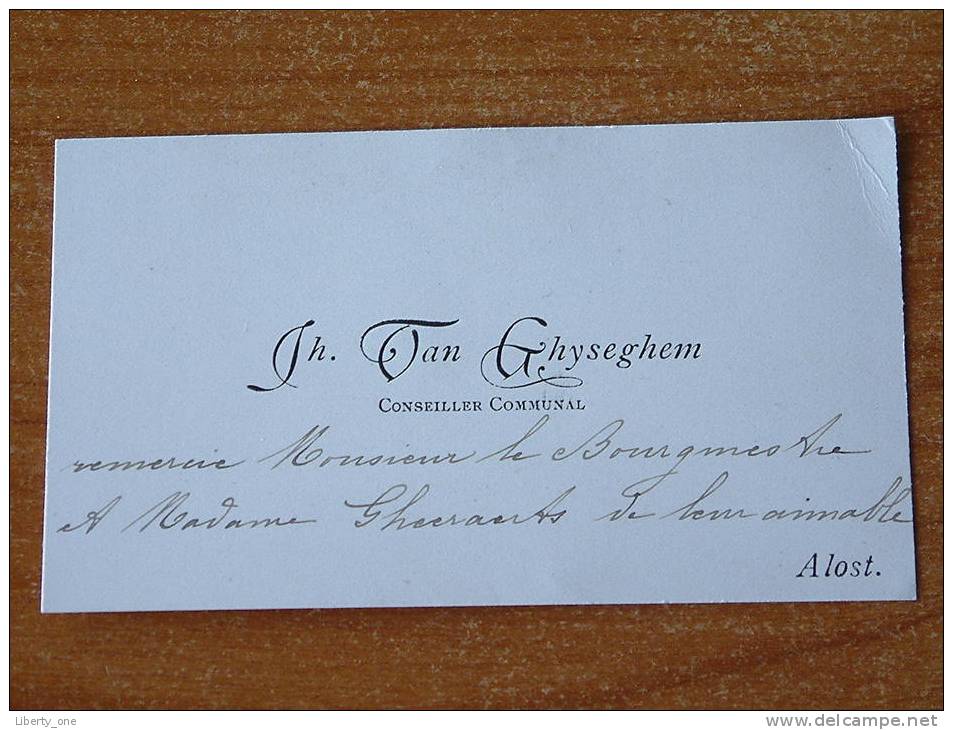 Jh. Van Ghyseghem
CONSEILLER COMMUNAL
remercie Monsieur le Bourgmestre
et Madame Gheeraerts de leur aimable
Alost.
Liberty_one
www.delcampe.net